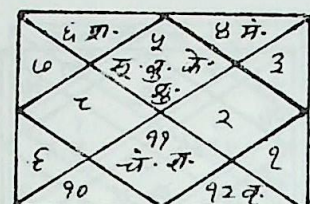 ६ श. ५ ४ मं.
७ सू. बु. के. ३
शु.
८ २
११
९ चं. रा. १
१० १२ वृ.